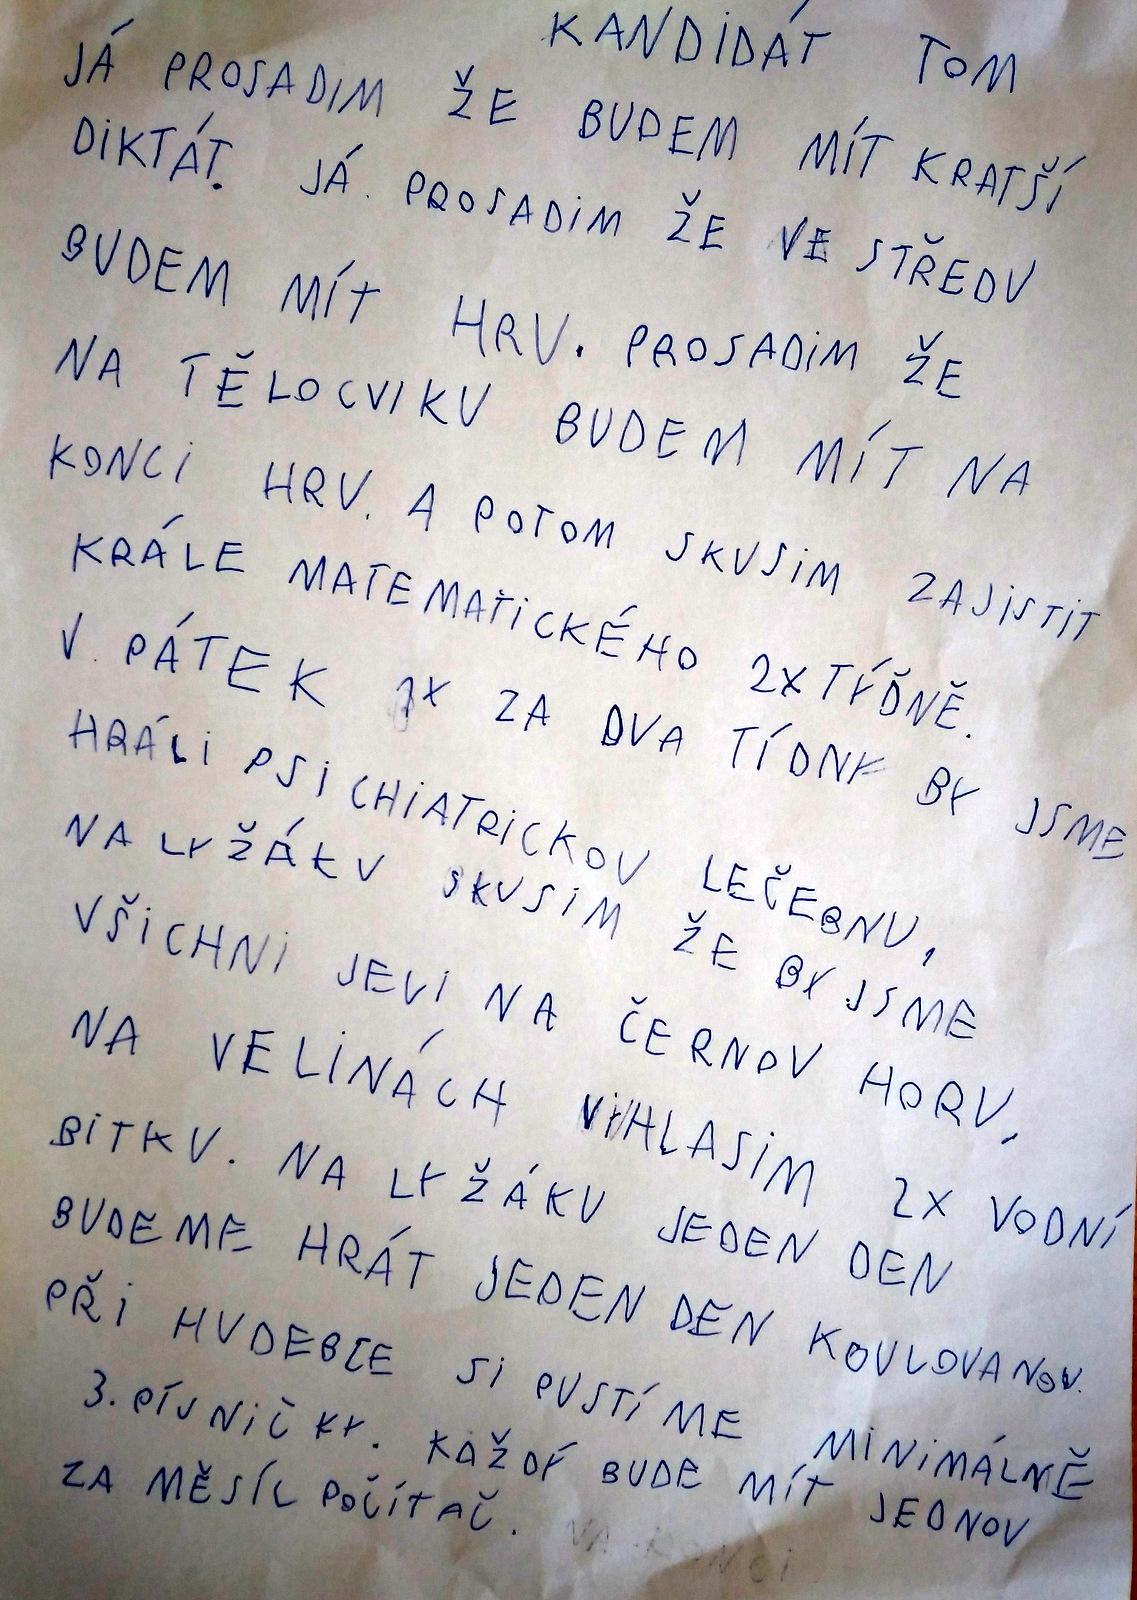 KANDIDÁT TOM
JÁ PROSADIM ŽE BUDEM MÍT KRATŠÍ
DIKTÁT. JÁ. PROSADIM ŽE VE STŘEDU
BUDEM MÍT HRU. PROSADIM ŽE
NA TĚLOCVIKU BUDEM MÍT NA
KONCI HRU. A POTOM SKUSIM ZAJISTIT
KRÁLE MATEMATICKÉHO 2X TÝĎNĚ.
V. PÁTEK 1X ZA DVA TÍDNY BY JSME
HRÁLI PSICHIATRICKOU LEČEBNU,
NA LYŽÁKU SKUSIM ŽE BY JSME
VŠICHNI JELI NA ČERNOU HORU,
NA VELINÁCH VYHLASIM 2X VODNÍ
BITKU. NA LYŽÁKU JEDEN DEN
BUDEME HRÁT JEDEN DEN KOULOVANOU.
PŘI HUDEBCE SI PUSTÍME MINIMÁLNĚ
3. PÍSNIČKY. KAŽDÝ BUDE MÍT JEDNOU
ZA MĚSÍC POČÍTAČ. NA KONCI